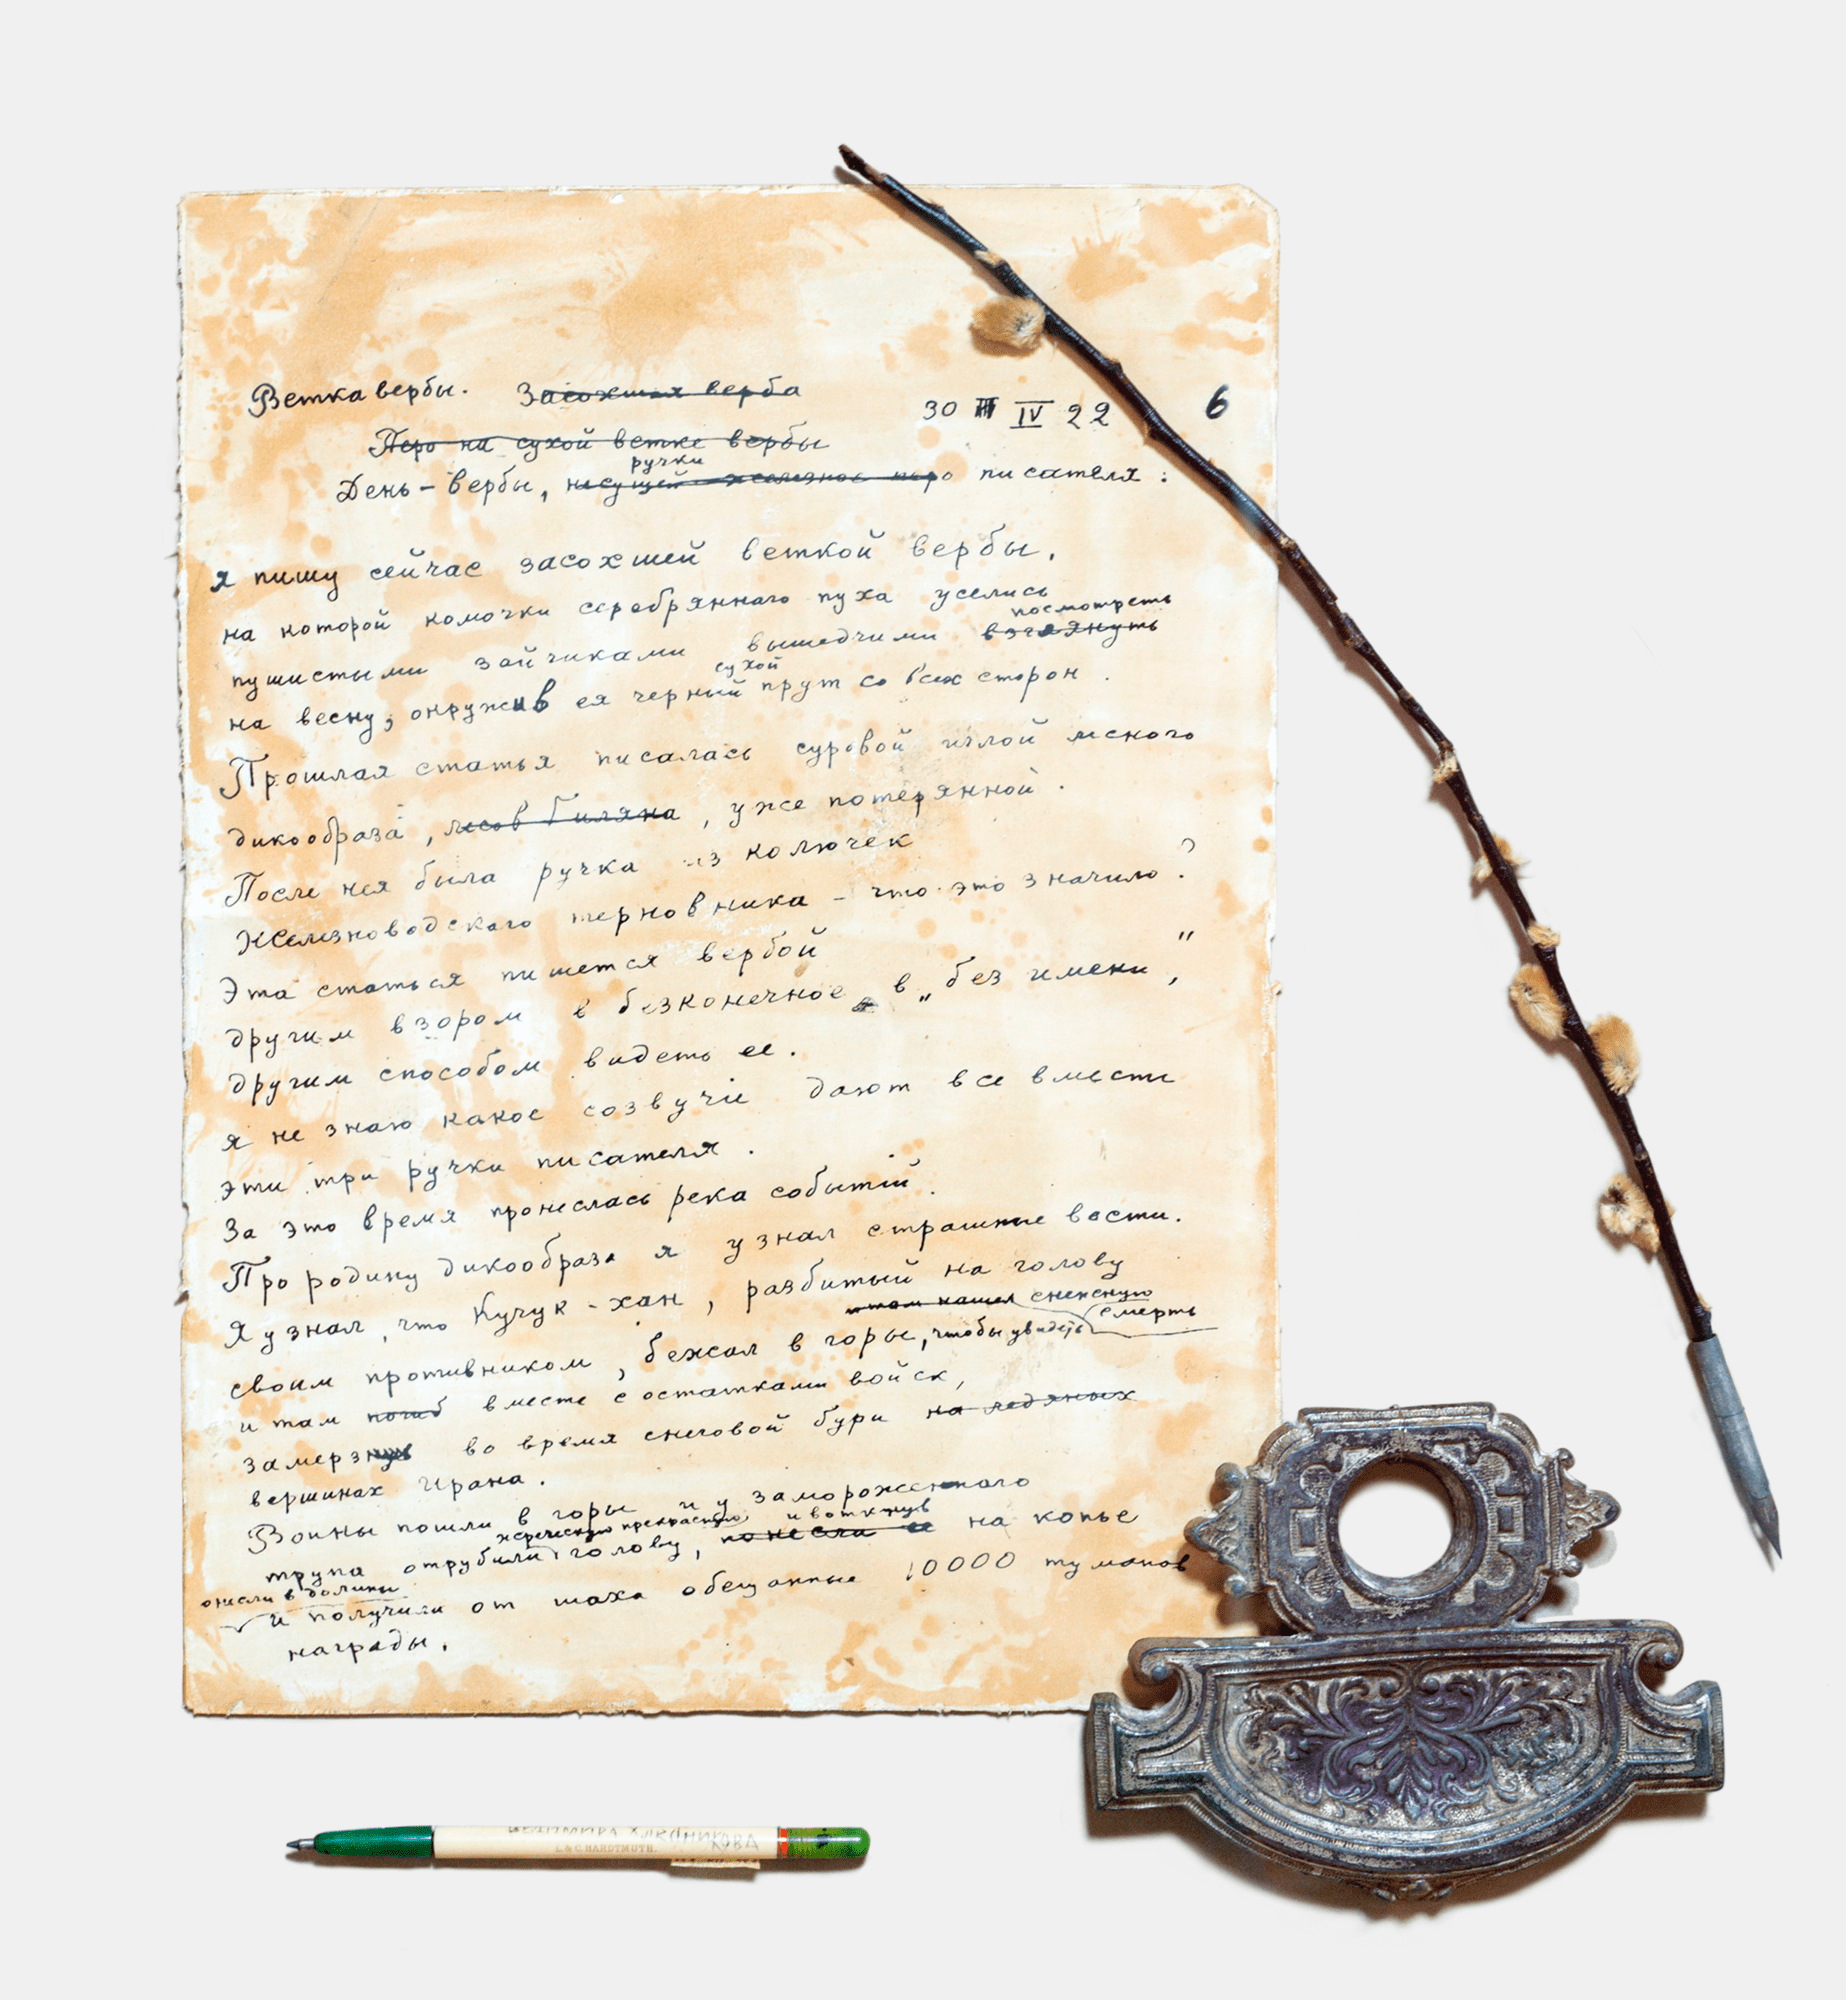 Ветка вербы. Засохшая верба
30 III IV 22 6
Перо на сухой ветке вербы
ручки
День – вербы, несущей железное перо писателя:
я пишу сейчас засохшей веткой вербы,
на которой комочки серебрянного пуха уселись
посмотреть
пушистыми зайчиками вышедчими взглянуть
сухой
на весну, окружив ея черный прут со всех сторон.
Прошлая статья писалась суровой иглой лесного
дикообраза, лесов Гиляна, уже потерянной.
После нея была ручка из колючек
Железноводского терновника – что это значило?
Эта статься пишется вербой
другим взором в безконечное в „без имени",
другим способом видеть ее.
я не знаю какое созвучие дают все вместе
эти три ручки писателя.
За это время пронеслась река событий.
Про родину дикообраза я узнал страшные вести.
Я узнал, что Кучук-хан, разбитый на голову
и там нашел снежную
смерть
своим противником, бежал в горы, чтобы увидеть
и там погиб вместе с остатками войск,
замерзнув во время снеговой бури на ледяных
вершинах Ирана.
Воины пошли в горы и у замороженного
жреческую прекрасную, и воткнув
трупа отрубили голову, понесли ее на копье
онесли в долины
и получили от шаха обещанные 10000 туманов
награды.
ВЕЛИМИРА ХЛЕБНИКОВА
L. & C. HARDTMUTH.